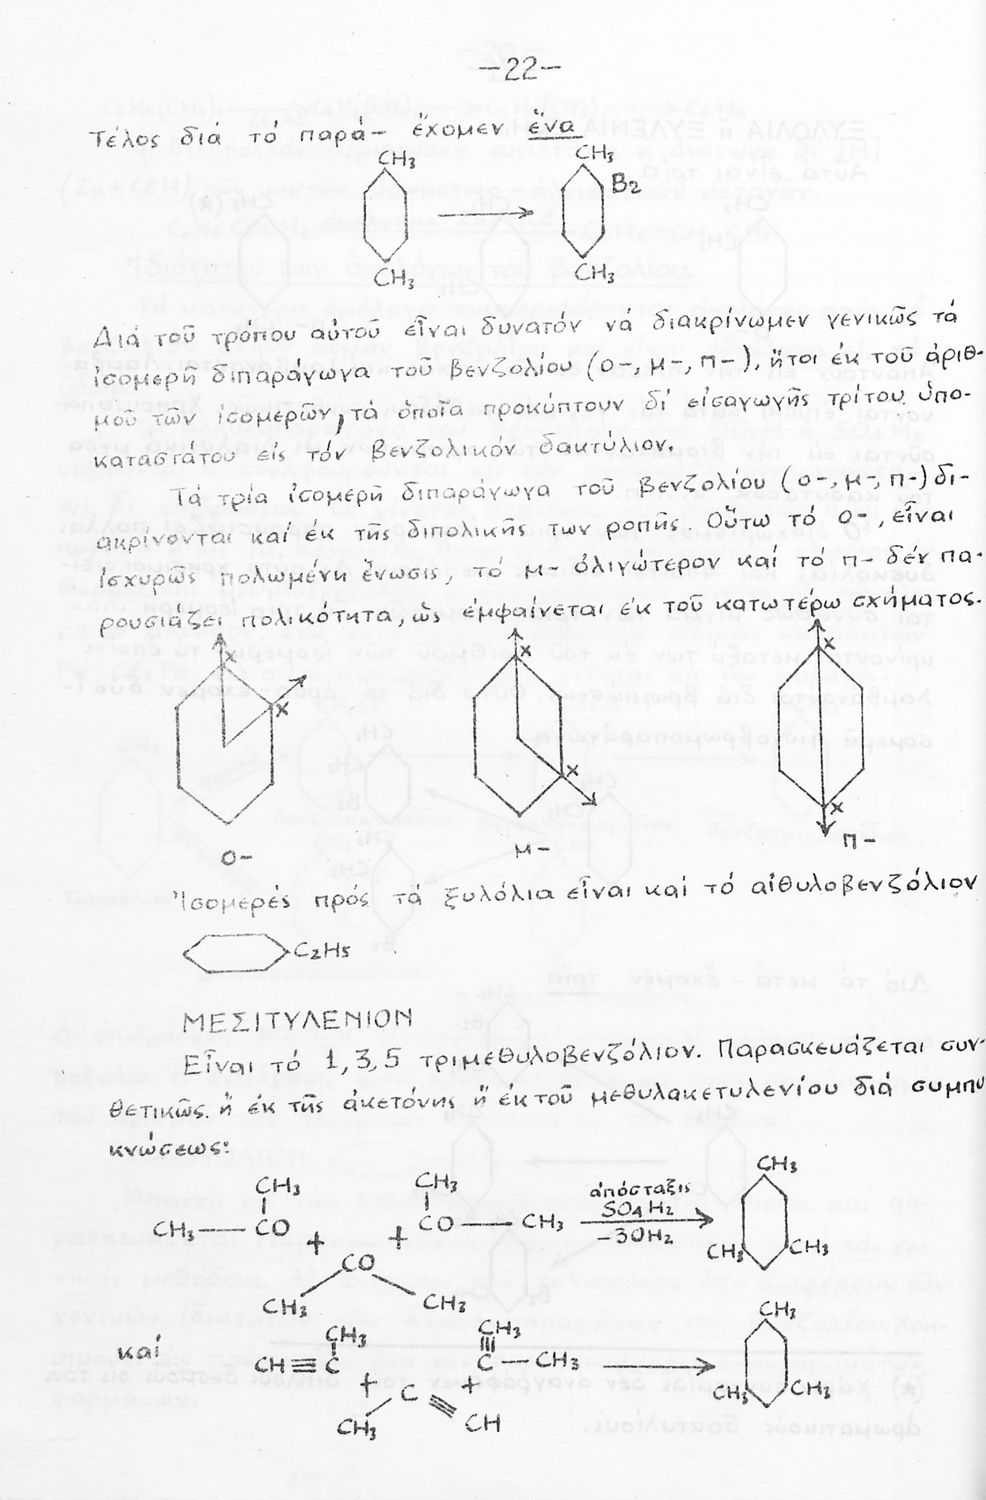 —22—
Τέλος διά τό παρά- ἔχομεν ἕνα
CH3 CH3
B2
CH3 CH3
Διά τοῦ τρόπου αὐτοῦ εἶναι δυνατόν νά διακρίνωμεν γενικῶς τά
ἰσομερῆ διπαράγωγα τοῦ βενζολίου (ο-, μ-, π-), ἤτοι ἐκ τοῦ ἀριθ-
μοῦ τῶν ἰσομερῶν, τά ὁποῖα προκύπτουν δι' εἰσαγωγῆς τρίτου ὑπο-
καταστάτου εἰς τόν βενζολικόν δακτύλιον.
Τά τρία ἰσομερῆ διπαράγωγα τοῦ βενζολίου (ο-, μ-, π-) δι-
ακρίνονται καί ἐκ τῆς διπολικῆς των ροπῆς. Οὕτω τό ο-, εἶναι
ἰσχυρῶς πολωμένη ἕνωσις, τό μ- ὀλιγώτερον καί τό π- δέν πα-
ρουσιάζει πολικότητα, ὡς ἐμφαίνεται ἐκ τοῦ κατωτέρω σχήματος.
X X X
X X X
ο- μ- π-
Ἰσομερές πρός τά ξυλόλια εἶναι καί τό αἰθυλοβενζόλιον
C2H5
ΜΕΣΙΤΥΛΕΝΙΟΝ
Εἶναι τό 1,3,5 τριμεθυλοβενζόλιον. Παρασκευάζεται συν-
θετικῶς ἤ ἐκ τῆς ἀκετόνης ἤ ἐκ τοῦ μεθυλακετυλενίου διά συμπυ
κνώσεως:
CH3 CH3 ἀπόσταξις CH3
CH3—CO + + CO—CH3 SO4H2
-3OH2 CH3 CH3
CO
CH3 CH3
καί CH3 CH3 CH3
CH≡C C—CH3
+ C + CH3 CH3
CH3 CH